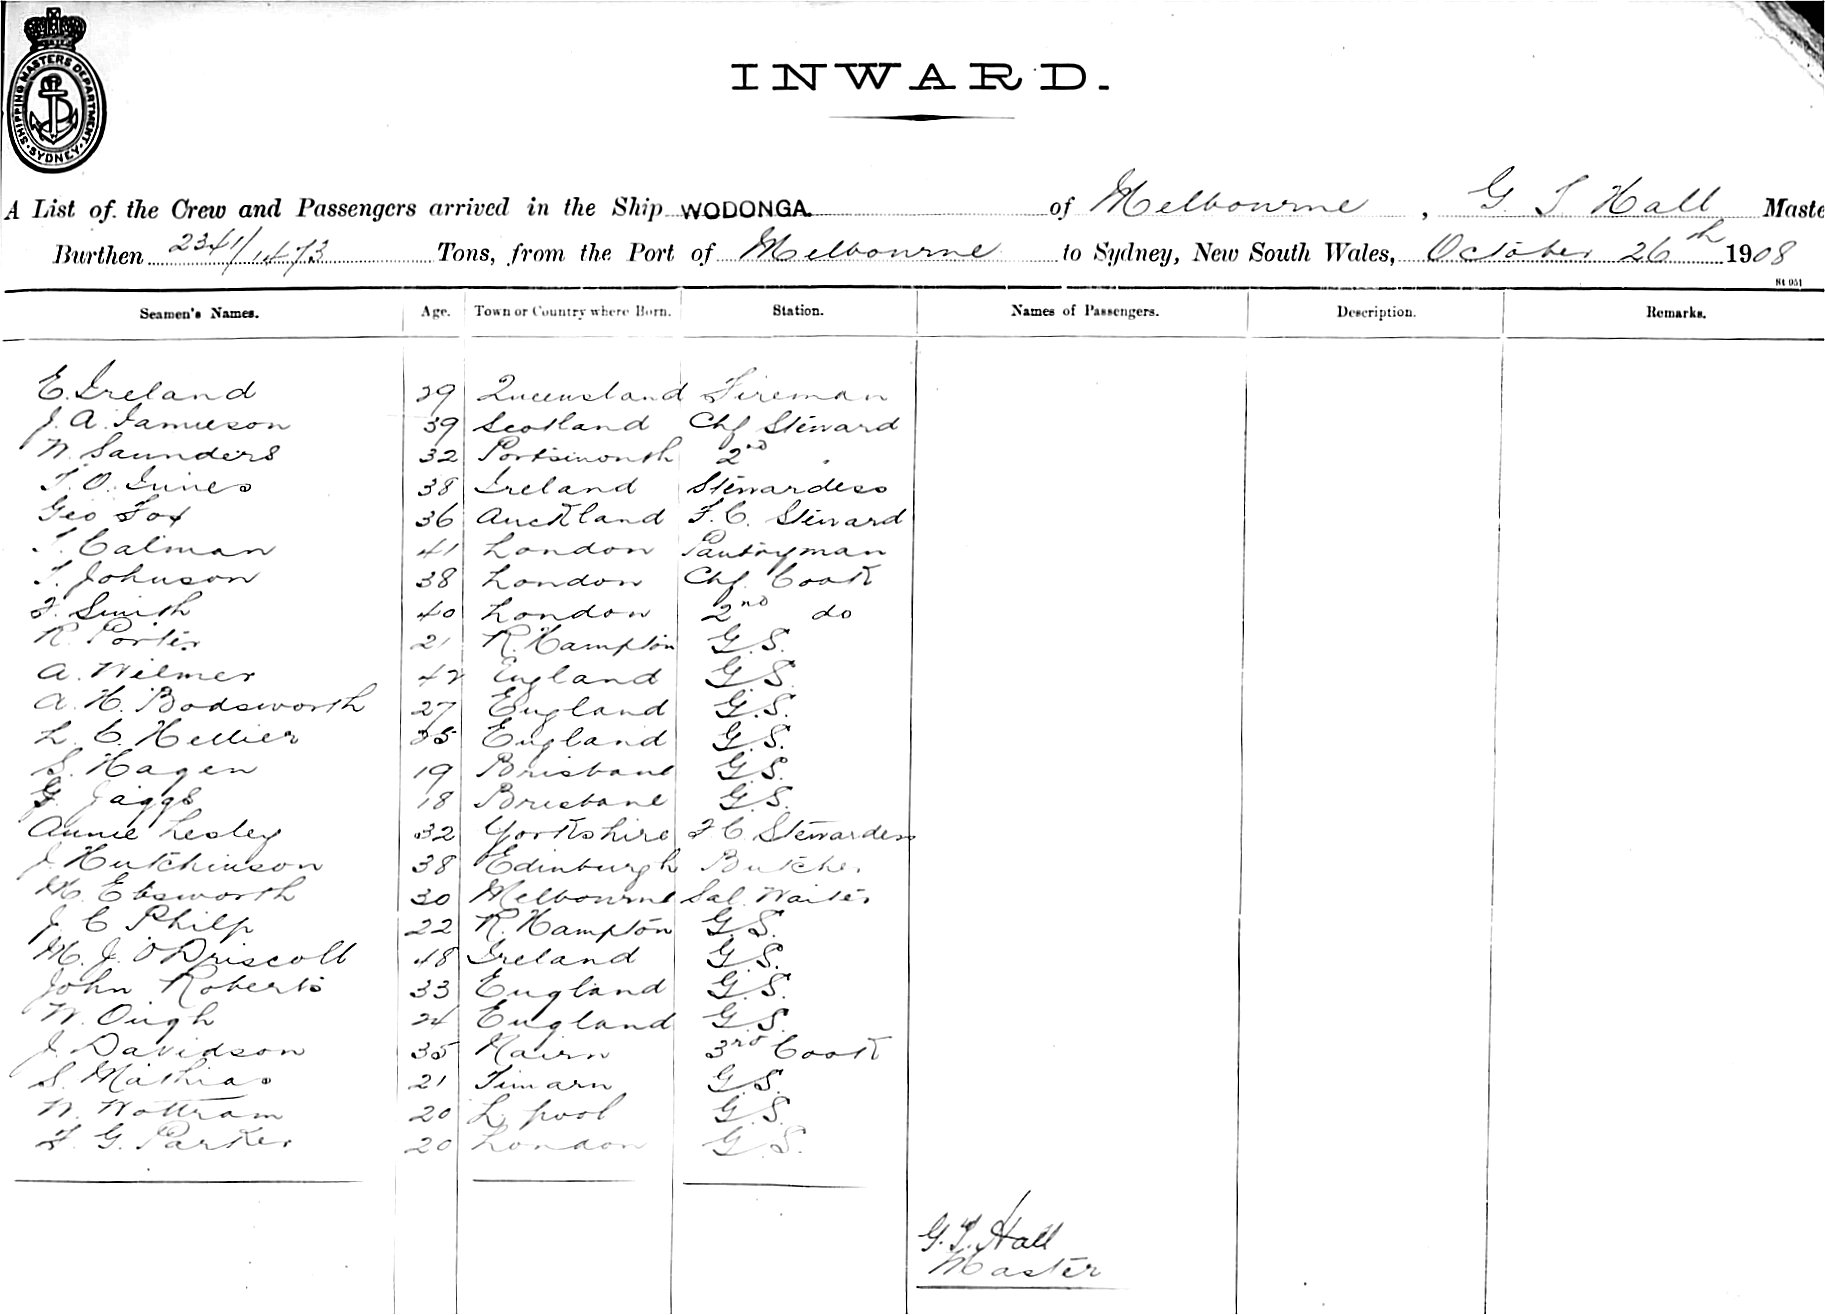 SHIPPING MASTERS DEPARTMENT
SYDNEY
INWARD.
A List of the Crew and Passengers arrived in the Ship WODONGA of Melbourne, G T Hall Maste
Burthen 2341/1473 Tons, from the Port of Melbourne to Sydney, New South Wales, October 26th 1908
St 051
Seamen's Names. Age. Town or Country where Born. Station. Names of Passengers. Description. Remarks.
E. Ireland 29 Queensland Fireman
J. A. Jamieson 39 Scotland Chf Steward
W. Saunders 32 Portsmouth 2nd "
T. O. Innes 38 Ireland Stewardess
Geo Fox 36 Auckland F. C. Steward
T. Calman 41 London Pantryman
T. Johnson 38 London Chf. Cook
F. Smith 40 London 2nd do
R. Porter 21 R. Hampton G.S.
A. Wilmer 42 England G.S.
A. H. Bodsworth 27 England G.S.
L. C. Hellier 35 England G.S.
S. Hagen 19 Brisbane G.S.
G. Jaggs 18 Brisbane G.S.
Annie Lesley 32 Yorkshire F C Stewardess
J. Hutchinson 38 Edinburgh Butcher
M. Ebsworth 30 Melbourne Sal. Waiter
J C Philp 22 R. Hampton G.S.
M. J. O'Driscoll 48 Ireland G.S.
John Roberts 33 England G.S.
W. Ough 24 England G.S.
J. Davidson 35 Nairn 3rd Cook
S. Mathias 21 Timaru G.S.
W. Wottram 20 L. pool G.S.
F. G. Parker 20 London G.S.
G. T. Hall
Master